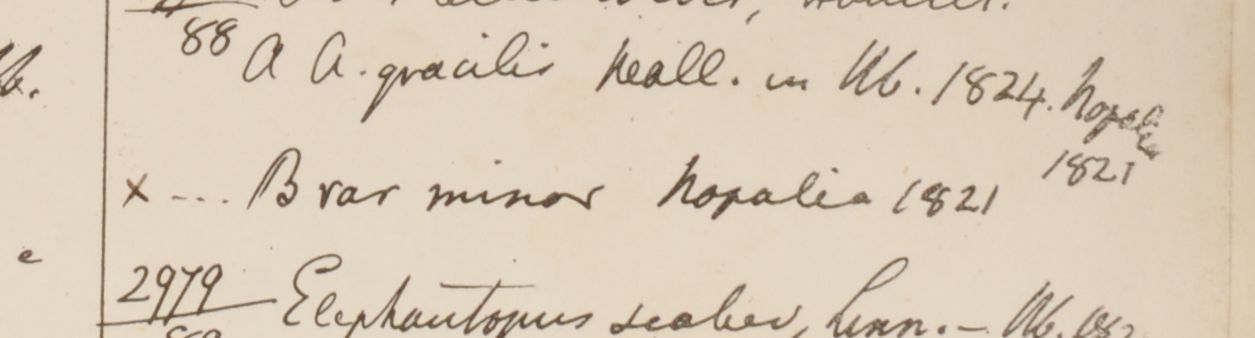 88 A A. gracilis Wall. in Hb. 1824. Nopalia
1821
x --- B var minor Nopalia 1821
2979 Elephantopus scaber, Linn. – Hb. 182